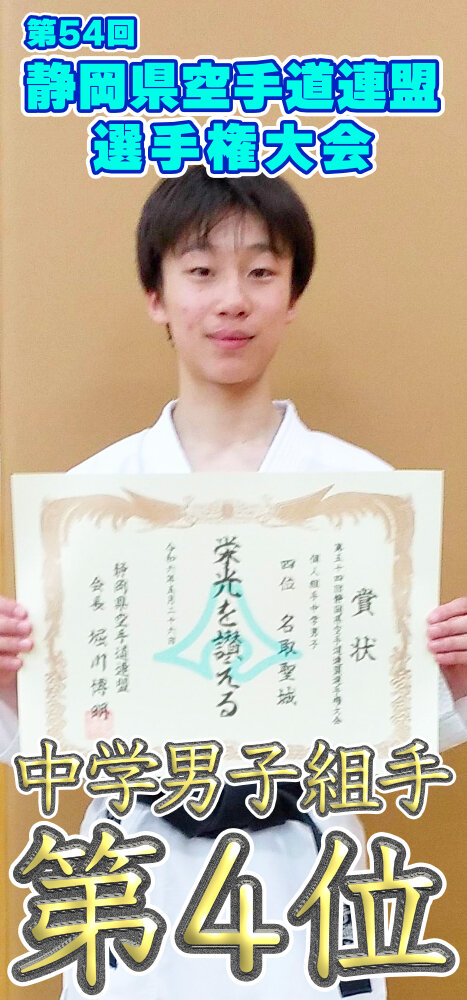 第54回
静岡県空手道連盟
選手権大会
賞状
第五十四回静岡県空手道連盟選手権大会
個人組手中学男子
四位 名取聖城
栄光を讃える
静岡県空手道連盟
会長 堀川博明
中学男子組手
第4位